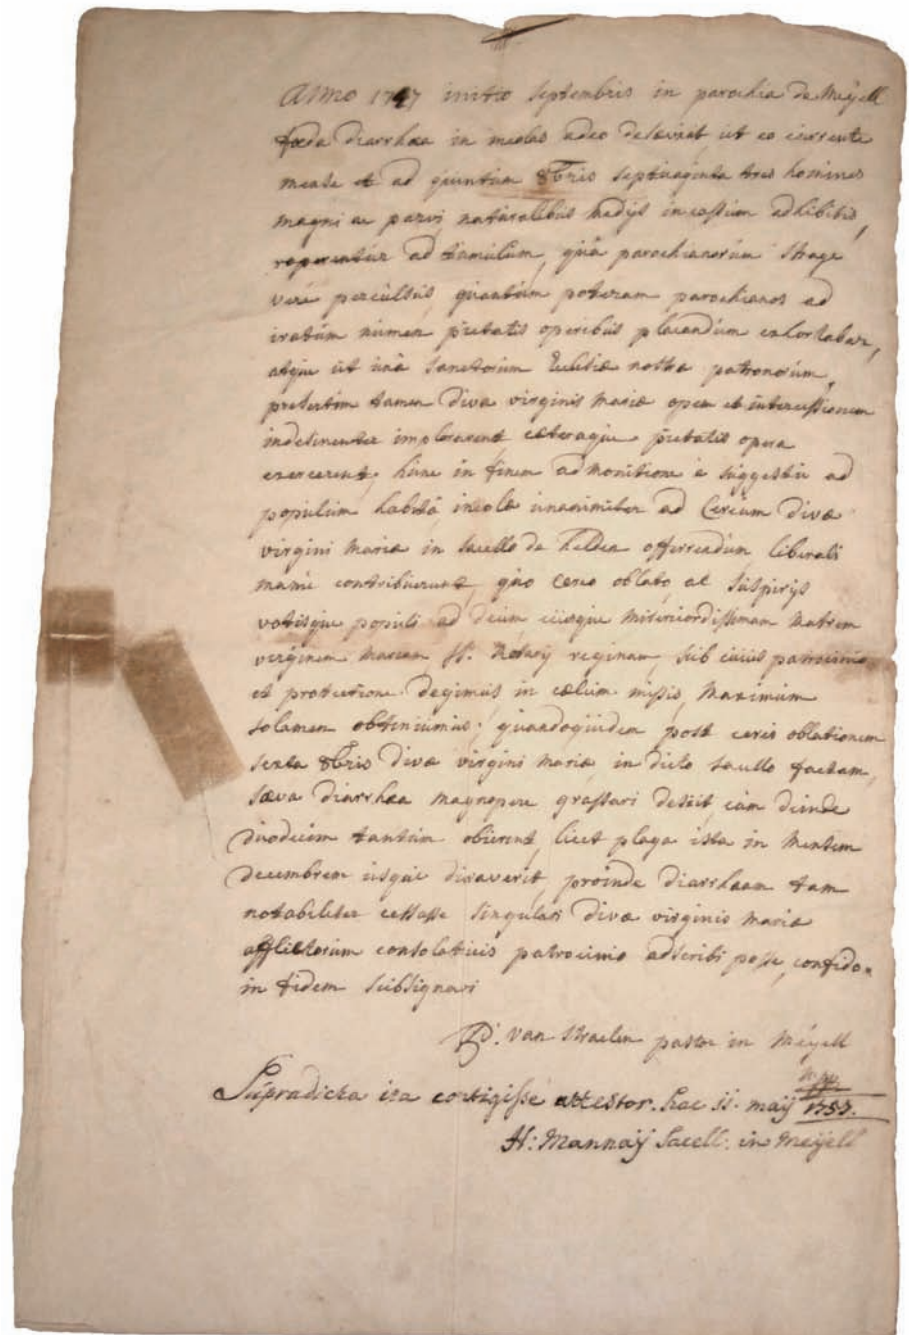 Anno 1747 initio septembris in parochia de Meijell
fœda diarrhœa in incolas adeo desæviit, ut eo currente
mense et ad quintum 8bris septuaginta tres homines
magni ac parvi naturalibus medijs incassum adhibitis,
raperentur ad tumulum, quâ parochianorum strage
vere perculsus, quantum poteram parochianos ad
iratum numen pietatis operibus placandum exhortabar,
atque ut unâ sanctorum Ecclesiæ nostræ patronorum,
presertim tamen divæ virginis mariæ opem et intercessionem
indesinenter implorarent cæteraque pietatis opera
exercerent, hunc in finem admonitione è suggestu ad
populum habitâ, incolæ unanimiter ad Cereum divæ
virgini mariæ in sacello de helden offerendum liberali
manu contribuerunt, quo cereo oblato, ac suspirijs
votisque populi ad deum eiusque misericordissimam matrem
virginem mariam st. Rosarij reginam, sub cuius patrocinio
et protectione degimus in cælum missis, maximum
solamen obtinuimus; quandoquidem post cerei oblationem
sexta 8bris divæ virgini mariæ in dicto sacello factam,
sæva diarrhœa magnopere grassari desiit, cum deinde
duodecim tantum obierint, licet plaga ista in mensem
decembrem usque duraverit, proinde diarrhœam tam
notabiliter cessasse singulari divæ virginis mariæ
afflictorum consolatricis patrocinio adscribi posse, confido.
in fidem subsignavi
van straelen pastor in Meijell
Supradicta ita contigisse attestor. hac 11. maij 1757.
H: Mannaij Sacell: in Meijell